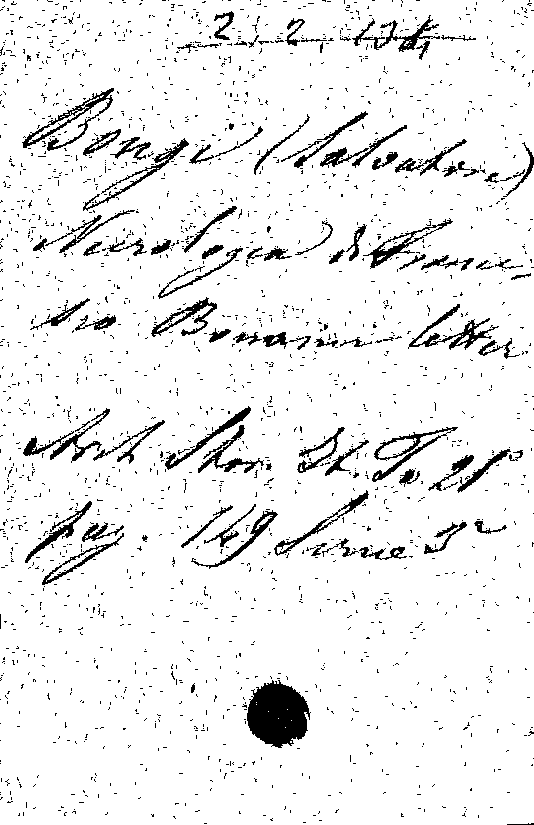 2. 2. 13
Bongi (Salvatore)
Necrologia di France-
sco Bonaini letter
Arch. Stor. It. To 21°
pag. 149 Serie 3ª